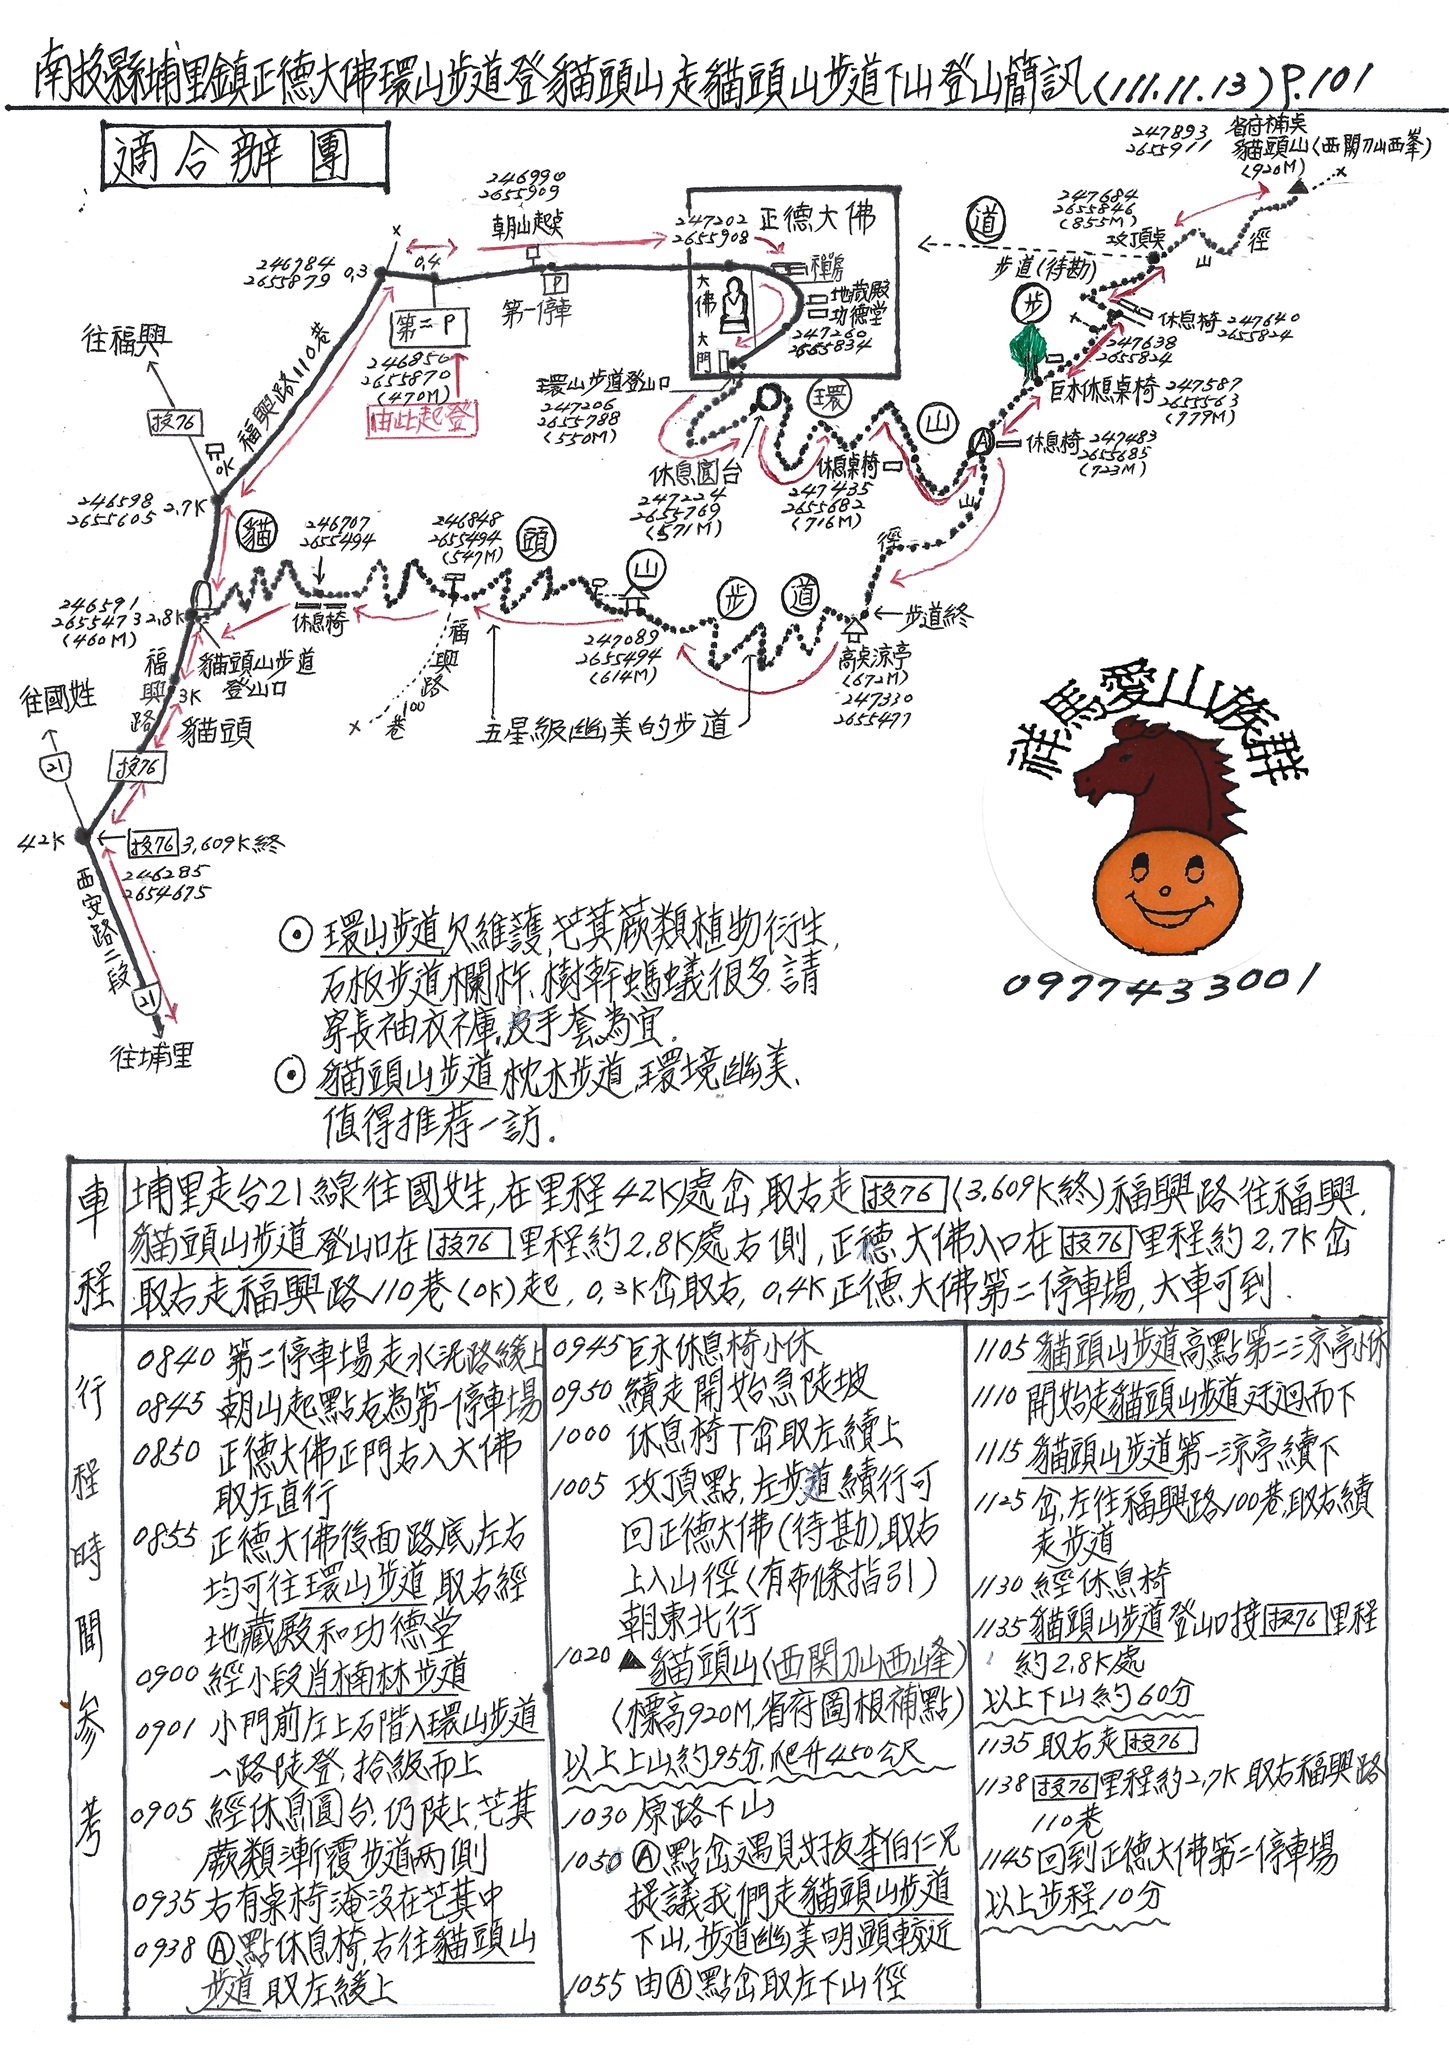 南投縣埔里鎮正德大佛環山步道登貓頭山走貓頭山步道下山登山簡訊(111.11.13)P.101
適合辦團
247893
2655911
省府楠點
貓頭山(西関刀山西峯)
(920M)
x
247684
2655846
(855M)
攻頂點
山
徑
道
步道(待勘)
步
休息椅
247640
2655824
247638
2655824
x
巨木休息桌椅
247587
2655563
(779M)
A
休息椅
247483
2655685
(723M)
246990
2655909
朝山起點
P
第一停車
247202
2655908
正德大佛
大佛
禪房
地藏殿
功德堂
247260
2655834
大門
x
246784
2655879
0.3
0.4
第二P
246856
2655870
(470M)
由此起登
環山步道登山口
247206
2655788
(550M)
環
山
休息圓台
247224
2655769
(571M)
休息桌椅
247435
2655682
(716M)
山
徑
往福興
投76
福興路110巷
0K
246598
2655605
2.7K
貓
246707
2655494
休息椅
246848
2655494
(547M)
頭
山
步
道
步道終
246591
2655473
(460M)
2.8K
貓頭山步道
登山口
福興路
3K
貓頭
福興路
100
巷
x
247089
2655494
(614M)
高點涼亭
(672M)
247330
2655477
五星級幽美的步道
往國姓
21
投76
42K
投76 3,609K終
246285
2654675
西安路二段
21
往埔里
祥馬愛山族群
0977433001
⊙環山步道欠維護,芒萁蕨類植物衍生,
石板步道欄杆、樹幹螞蟻很多.請
穿長袖衣褲,皮手套為宜.
⊙貓頭山步道枕木步道,環境幽美、
值得推荐一訪.
車程
埔里走台21線往國姓,在里程42K處岔,取右走投76(3,609K終)福興路往福興,
貓頭山步道登山口在投76里程約2.8K處右側,正德大佛入口在投76里程約2.7K岔
取右走福興路110巷(0K)起,0.3K岔取右,0.4K正德大佛第二停車場,大車可到.
行程時間參考
0840 第二停車場走水泥路緩上
0845 朝山起點右為第一停車場
0850 正德大佛正門右入大佛
取左直行
0855 正德大佛後面路底,左右
均可往環山步道取右經
地藏殿和功德堂
0900 經小段肖楠林步道
0901 小門前左上石階入環山步道
一路陡登,拾級而上
0905 經休息圓台,仍陡上,芒萁
蕨類漸覆步道兩側
0935 右有桌椅淹沒在芒萁中
0938 Ⓐ點休息椅,右往貓頭山
步道取左緩上
0945 巨木休息椅小休
0950 續走開始急陡坡
1000 休息椅丁岔取左續上
1005 攻頂點,左步道續行可
回正德大佛(待勘),取右
上入山徑(有布條指引)
朝東北行
1020 ▲貓頭山(西関刀山西峰)
(標高920M,省府圖根補點)
以上上山約95分,爬升450公尺
1030 原路下山
1050 Ⓐ點岔遇見好友李伯仁兄
提議我們走貓頭山步道
下山,步道幽美明顯較近
1055 由Ⓐ點岔取左下山徑
1105 貓頭山步道高點第二涼亭小休
1110 開始走貓頭山步道迂迴而下
1115 貓頭山步道第一涼亭續下
1125 岔,左往福興路100巷,取右續
走步道
1130 經休息椅
1135 貓頭山步道登山口接投76里程
約2.8K處
以上下山約60分
1135 取右走投76
1138 投76里程約2.7K取右福興路
110巷
1145 回到正德大佛第二停車場
以上步程10分